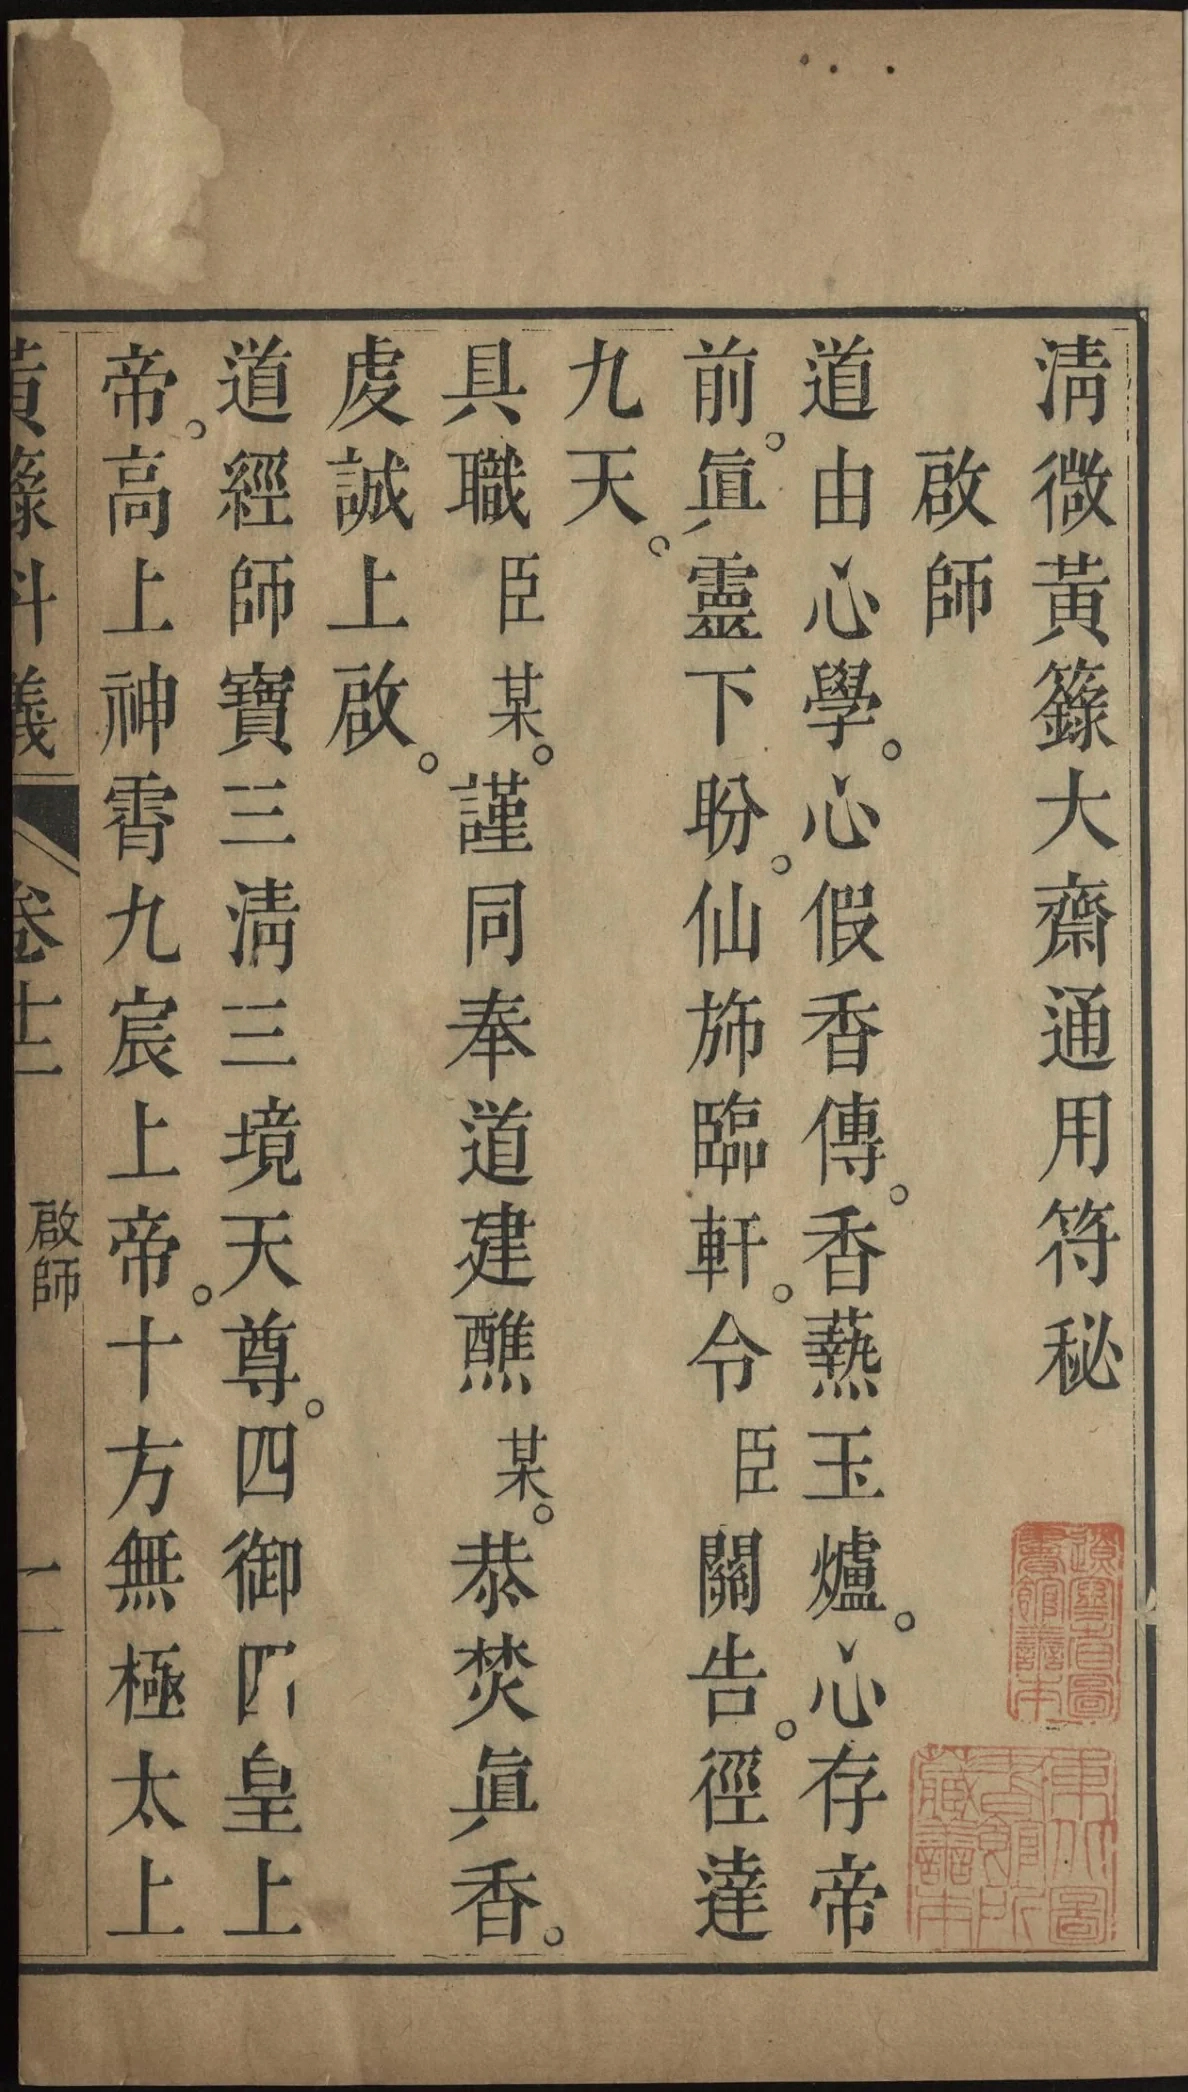 淸微黃籙大齋通用符秘
啟師
道由心學。心假香傳。香爇玉爐。心存帝
前。眞靈下盼。仙斾臨軒。令臣關告。徑達
九天。
具職臣某。謹同奉道建醮某。恭焚眞香。
虔誠上啟。
道經師寶三淸三境天尊。四御四皇上
帝。高上神霄九宸上帝。十方無極太上
黃籙科儀
卷十二
啟師
一